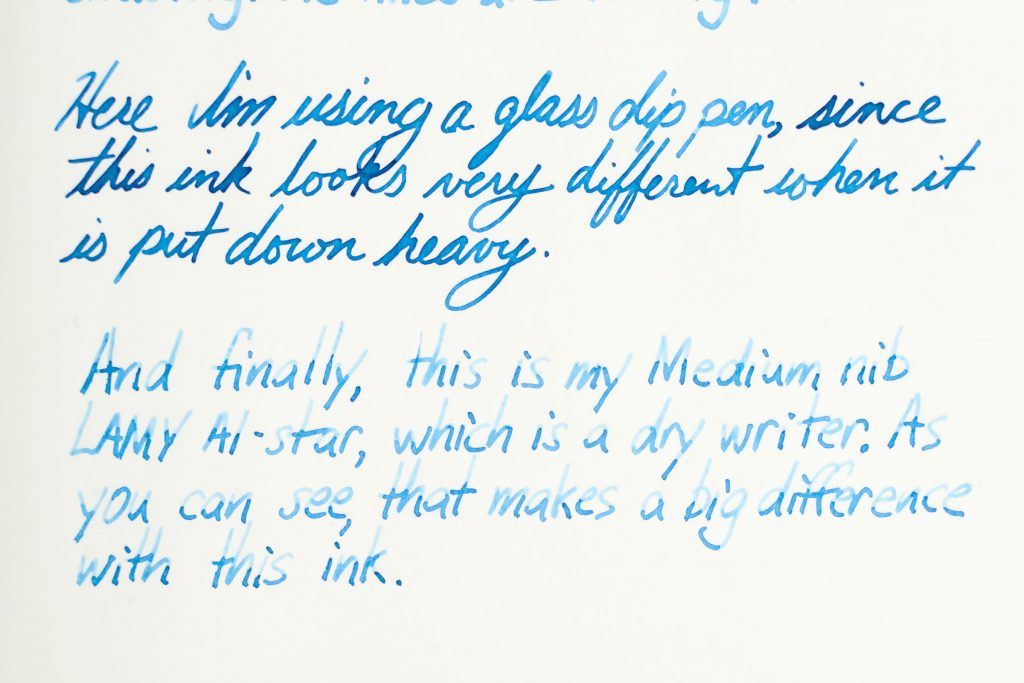 Here I'm using a glass dip pen, since
this ink looks very different when it
is put down heavy.
And finally, this is my Medium nib
LAMY Al-star, which is a dry writer. As
you can see, that makes a big difference
with this ink.